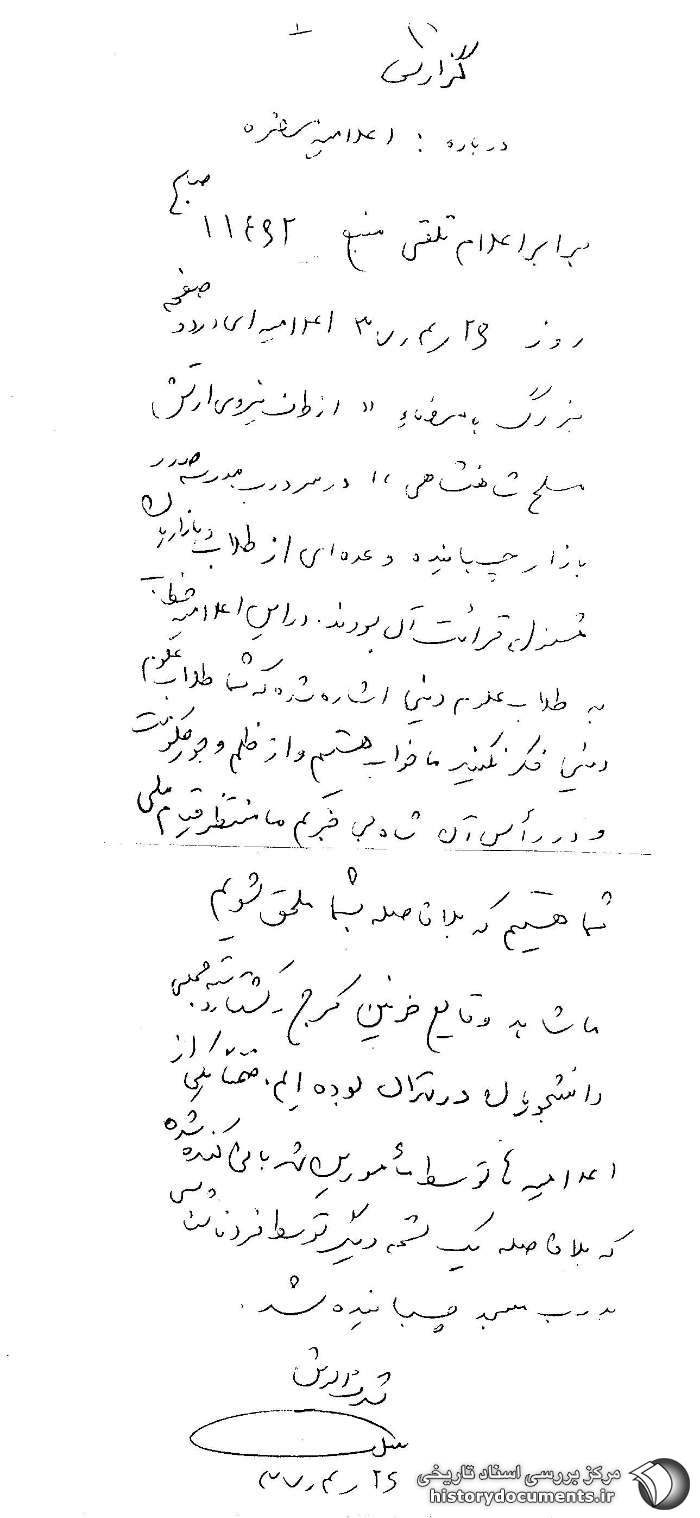 گزارش
درباره : اعلامیه منتشره
برابر اعلام تلفنی منبع ۱۱۴۹۲ صبح
روز ۲۶ر۴ر۳۷ اعلامیه ای در دو صفحه
بزرگ به امضاء " از طرف نیروی ارتش
مسلح شاهنشاهی " در سر درب مدرسه صدر
بازار چسبانیده و عده ای از طلاب و بازاریان
مشغول قرائت آن بودند. در این اعلامیه خطاب
به طلاب علوم دینی اشاره شده که شما طلاب علوم
دینی فکر نکنید ما خواب هستیم و از ظلم و جور حکومت
و در رأس آن شاه بی خبریم ما منتظر قیام ملی
شما هستیم که بلافاصله بشما ملحق شویم
ما شاهد وقایع خونین کرج و کشتار دسته جمعی
دانشجویان در تهران بوده ایم. ضمناً یکی از
اعلامیه ها توسط مأمورین شهربانی کنده شده
که بلافاصله یک نسخه دیگر توسط فرد ناشناسی
بدرب مسجد چسبانیده شد.
۲۶ر۴ر۳۷
مرکز بررسی اسناد تاریخی
historydocuments.ir